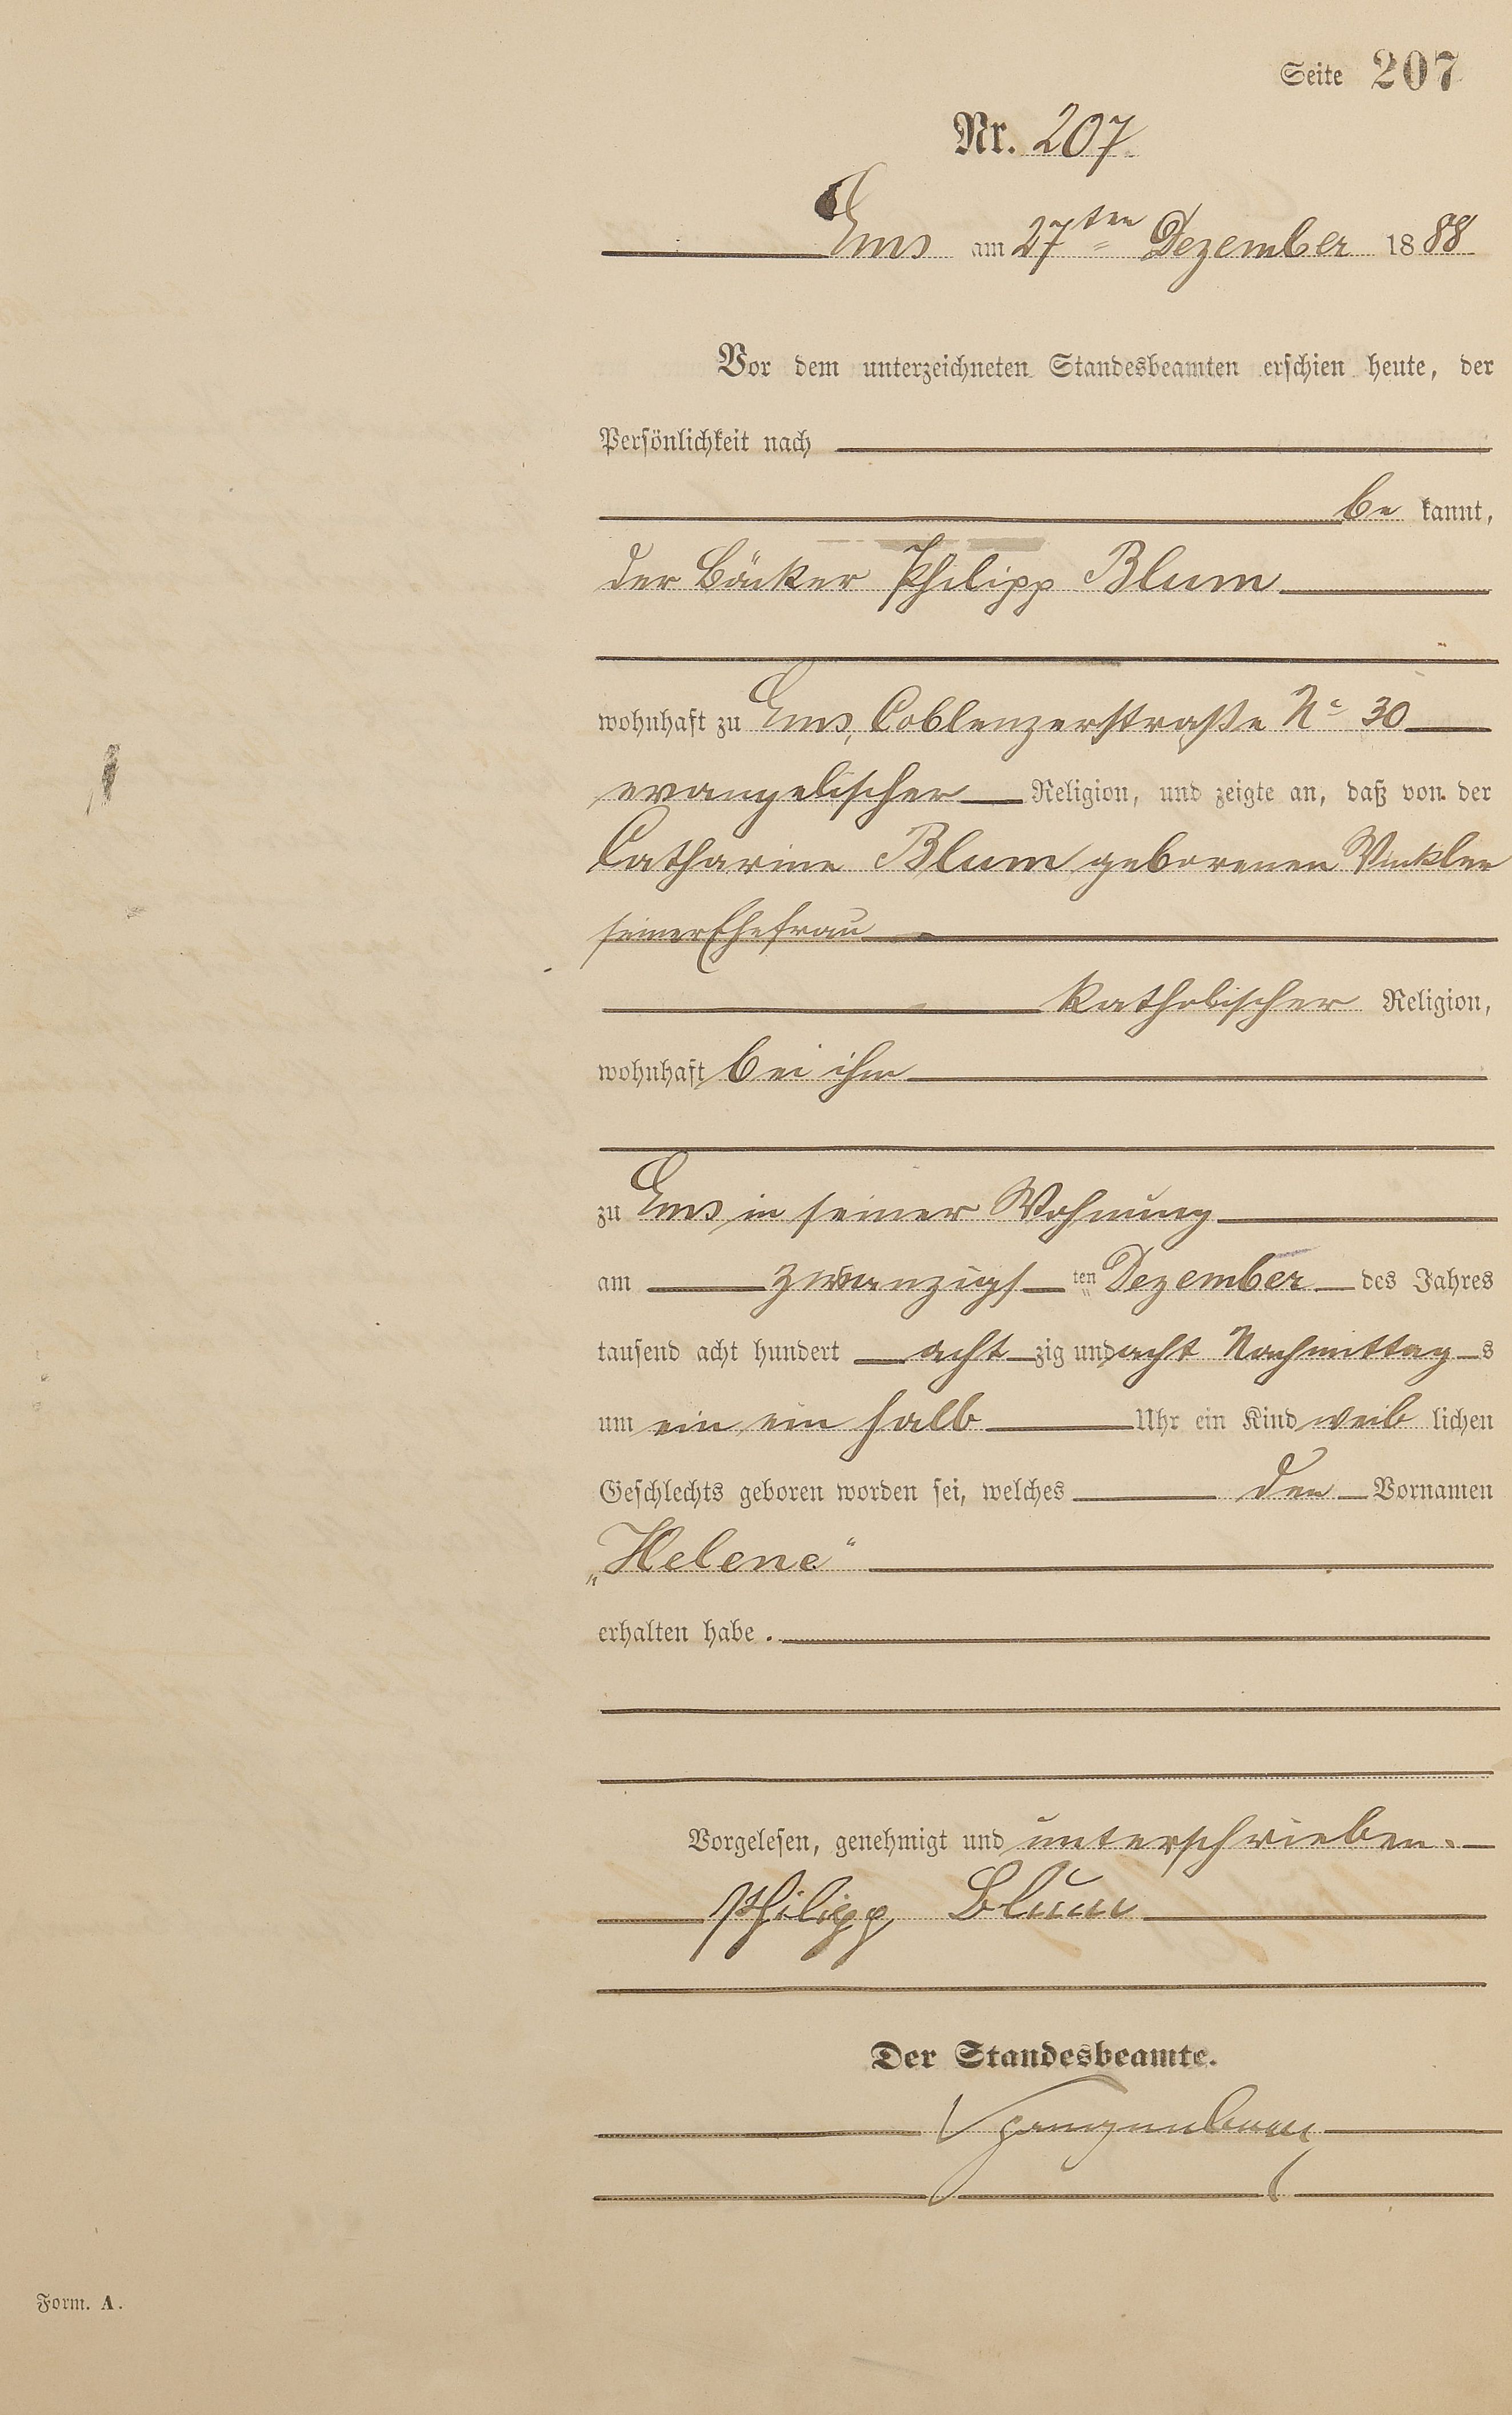 Seite 207
Nr. 207.
Ems am 27ten Dezember 1888
Vor dem unterzeichneten Standesbeamten erschien heute, der
Persönlichkeit nach
be kannt,
der Bäcker Philipp Blum
wohnhaft zu Ems, Coblenzerstraße No 30
evangelischer Religion, und zeigte an, daß von der
Catharine Blum geborenen Winkler
seiner Ehefrau
katholischer Religion,
wohnhaft bei ihm
zu Ems in seiner Wohnung
am zwanzigs ten Dezember des Jahres
tausend acht hundert acht zig und acht Nachmittag s
um ein ein halb Uhr ein Kind weib lichen
Geschlechts geboren worden sei, welches den Vornamen
„Helene“
erhalten habe.
Vorgelesen, genehmigt und unterschrieben.
Philipp Blum
Der Standesbeamte.
Form. A.